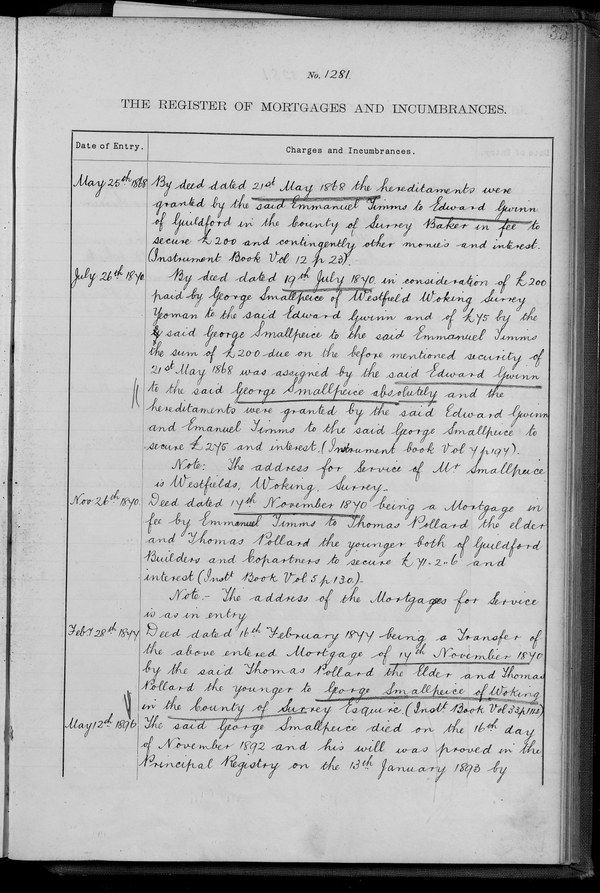 35
No. 1281.
THE REGISTER OF MORTGAGES AND INCUMBRANCES.
Date of Entry. Charges and Incumbrances.
May 25th 1868 By deed dated 21st May 1868 the hereditaments were
granted by the said Emmanuel Timms to Edward Gwinn
of Guildford in the County of Surrey Baker in fee to
secure £200 and contingently other monies and interest.
(Instrument Book Vol 12 p 23).
July 26th 1870. By deed dated 19th July 1870. in consideration of £200
paid by George Smallpeice of Westfield Woking Surrey
Yoman to the said Edward Gwinn and of £75 by the
said George Smallpeice to the said Emmanuel Timms
the sum of £200 due on the before mentioned security of
21st May 1868 was assigned by the said Edward Gwinn
to the said George Smallpeice absolutely and the
hereditaments were granted by the said Edward Gwinn
and Emanuel Timms to the said George Smallpeice to
secure £275 and interest. (Instrument book Vol 4 p 197).
Note: The address for Service of Mr Smallpeice
is Westfields, Woking, Surrey.
Nov 26th 1870. Deed dated 17th November 1870 being a Mortgage in
fee by Emmanuel Timms to Thomas Pollard the elder
and Thomas Pollard the younger both of Guildford
Builders and Copartners to secure £71-2-6 and
interest (Instt Book Vol 5 p 130.)
Note:- The address of the Mortgages for Service
is as in entry
Feby 28th 1877 Deed dated 16th February 1877 being a Transfer of
the above entered Mortgage of 17th November 1870
by the said Thomas Pollard the Elder and Thomas
Pollard the younger to George Smallpeice of Woking
in the County of Surrey Esquire (Instt Book Vol 33 p
May 12th 1896 The said George Smallpeice died on the 16th day
of November 1892 and his will was proved in the
Principal Registry on the 13th January 1893 by